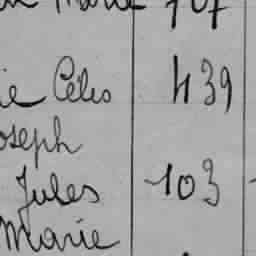 Marie 707
ie Céles 439
oseph
Jules 103
Marie